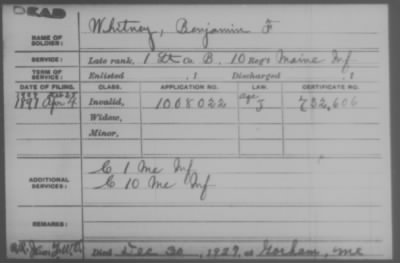 DEAD
NAME OF SOLDIER: Whitney, Benjamin F
SERVICE: Late rank, 1 Lt Co. B, 10 Reg't Maine Inf
TERM OF SERVICE: Enlisted , 1 Discharged , 1
DATE OF FILING. CLASS. APPLICATION NO. LAW. CERTIFICATE NO.
1897 Apr 4 Invalid, 1008022 Age J 732,606
Widow,
Minor,
ADDITIONAL SERVICES: C 1 Me Inf
C 10 Me Inf
REMARKS:
Died Dec 30, 1929, at Gorham, Me